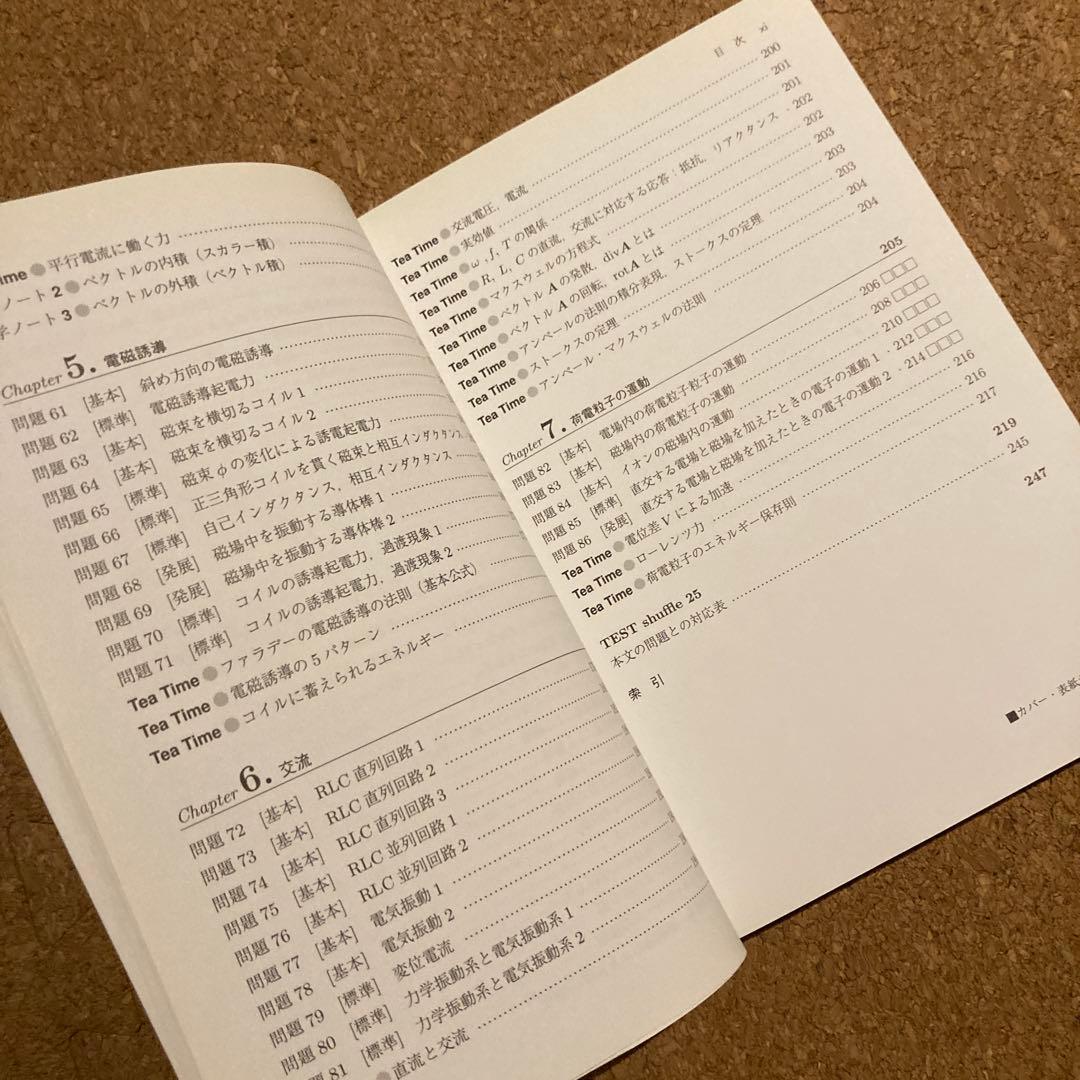 ime ● 平行電流に働く力
ノート 2 ● ベクトルの内積（スカラー積）
学ノート 3 ● ベクトルの外積（ベクトル積）
Chapter 5. 電磁誘導
問題 61 [基本] 斜め方向の電磁誘導
問題 62 [標準] 電磁誘導起電力
問題 63 [基本] 磁束を横切るコイル 1
問題 64 [基本] 磁束を横切るコイル 2
問題 65 [標準] 磁束 φ の変化による誘電起電力
問題 66 [標準] 正三角形コイルを貫く磁束と相互インダクタンス
問題 67 [標準] 自己インダクタンス，相互インダクタンス
問題 68 [発展] 磁場中を振動する導体棒 1
問題 69 [発展] 磁場中を振動する導体棒 2
問題 70 [標準] コイルの誘導起電力，過渡現象 1
問題 71 [標準] コイルの誘導起電力，過渡現象 2
Tea Time ● ファラデーの電磁誘導の法則（基本公式）
Tea Time ● 電磁誘導の 5 パターン
Tea Time ● コイルに蓄えられるエネルギー
Chapter 6. 交流
問題 72 [基本] RLC 直列回路 1
問題 73 [基本] RLC 直列回路 2
問題 74 [基本] RLC 直列回路 3
問題 75 [基本] RLC 並列回路 1
問題 76 [基本] RLC 並列回路 2
問題 77 [基本] 電気振動 1
問題 78 [基本] 電気振動 2
問題 79 [標準] 変位電流
問題 80 [標準] 力学振動系と電気振動系 1
81 [標準] 力学振動系と電気振動系 2
● 直流と交流
目 次 xi
Tea Time ● 交流電圧，電流 200
Tea Time ● 実効値 201
Tea Time ● ω, f, T の関係 201
Tea Time ● R, L, C の直流，交流に対応する応答；抵抗，リアクタンス 202
Tea Time ● マクスウェルの方程式 202
Tea Time ● ベクトル A の発散，div A とは 203
Tea Time ● ベクトル A の回転，rot A とは 203
Tea Time ● アンペールの法則の積分表現，ストークスの定理 203
Tea Time ● ストークスの定理 204
Tea Time ● アンペール・マクスウェルの法則 204
Chapter 7. 荷電粒子の運動 205
問題 82 [基本] 電場内の荷電粒子粒子の運動 206 □□□
問題 83 [基本] 磁場内の荷電粒子の運動 208 □□□
問題 84 [基本] イオンの磁場内の運動 210 □□□
問題 85 [標準] 直交する電場と磁場を加えたときの電子の運動 1 212 □□□
問題 86 [発展] 直交する電場と磁場を加えたときの電子の運動 2 214 □□□
Tea Time ● 電位差 V による加速 216
Tea Time ● ローレンツ力 216
Tea Time ● 荷電粒子のエネルギー保存則 217
TEST shuffle 25 219
本文の問題との対応表 245
索 引 247
■カバー・表紙